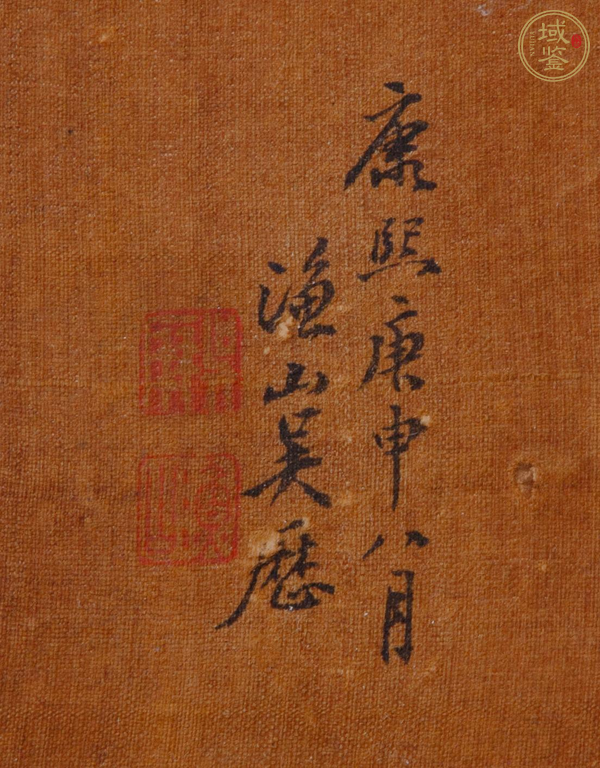 康熙庚申八月
漁山吳歷
域鉴